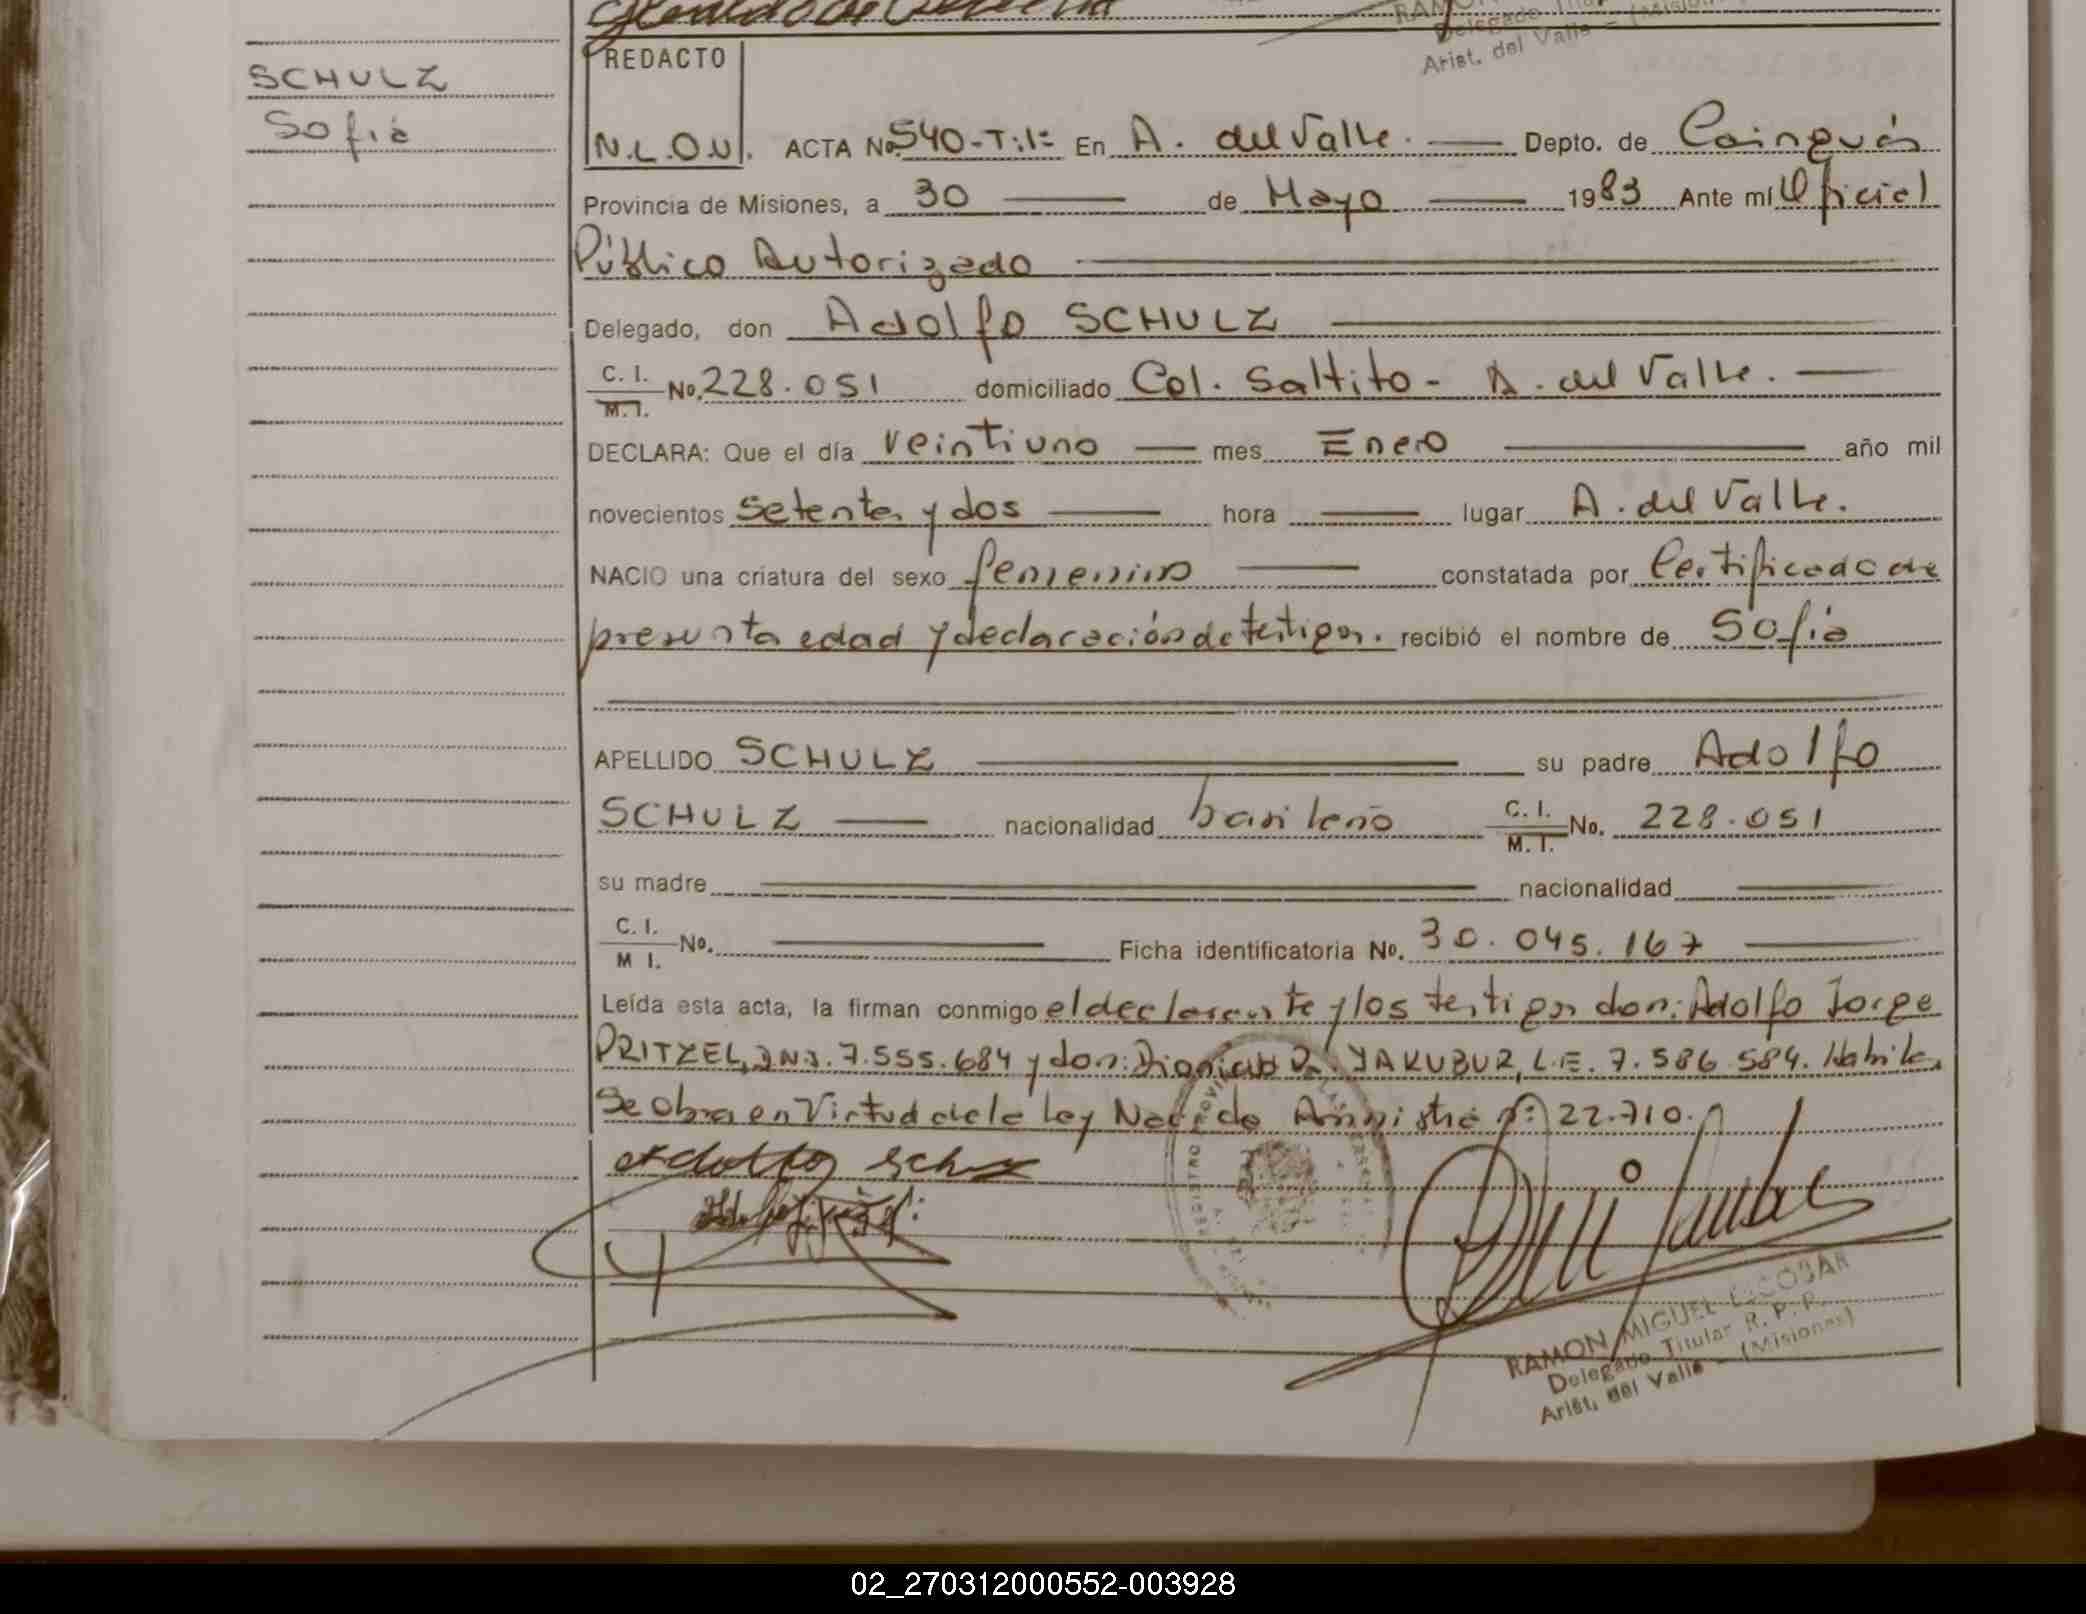 SCHULZ
Sofia
REDACTO
N.L.O.N. ACTA No. 540-T:1º En A. del Valle. Depto. de Cainguás
Provincia de Misiones, a 30 de Mayo 1983 Ante mí Oficial
Público Autorizado
Delegado, don Adolfo SCHULZ
C. I. M. I. No. 228.051 domiciliado Col. Saltito - A. del Valle.
DECLARA: Que el día veintiuno mes Enero año mil
novecientos setenta y dos hora lugar A. del Valle.
NACIO una criatura del sexo femenino constatada por Certificado de
presunta edad y declaración de testigos. recibió el nombre de Sofia
APELLIDO SCHULZ su padre Adolfo
SCHULZ nacionalidad brasileño C. I. M. I. No. 228.051
su madre nacionalidad
C. I. M I. No. Ficha identificatoria No. 30.045.167
Leída esta acta, la firman conmigo el declarante y los testigos don: Adolfo Jorge
PRITZEL, D.N.I. 7.555.684 y don: Dionicio R. YAKUBUR, L.E. 7.586.584. Habiles
Se obra en Virtud de la Ley Nac. de Amnistia nº: 22.710.
Adolfo Schulz
RAMON MIGUEL ESCOBAR
Delegado Titular R. P. P.
Arist. del Valle - (Misiones)
Arist. del Valle - (Misiones)
02_270312000552-003928